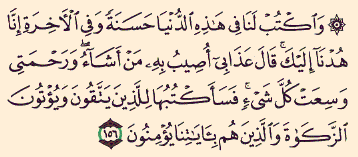 ۞ وَٱكۡتُبۡ لَنَا فِي هَٰذِهِ ٱلدُّنۡيَا حَسَنَةٗ وَفِي ٱلۡأٓخِرَةِ إِنَّا
هُدۡنَآ إِلَيۡكَۚ قَالَ عَذَابِيٓ أُصِيبُ بِهِۦ مَنۡ أَشَآءُۖ وَرَحۡمَتِي
وَسِعَتۡ كُلَّ شَيۡءٖۚ فَسَأَكۡتُبُهَا لِلَّذِينَ يَتَّقُونَ وَيُؤۡتُونَ
ٱلزَّكَوٰةَ وَٱلَّذِينَ هُم بِـَٔايَٰتِنَا يُؤۡمِنُونَ ١٥٦